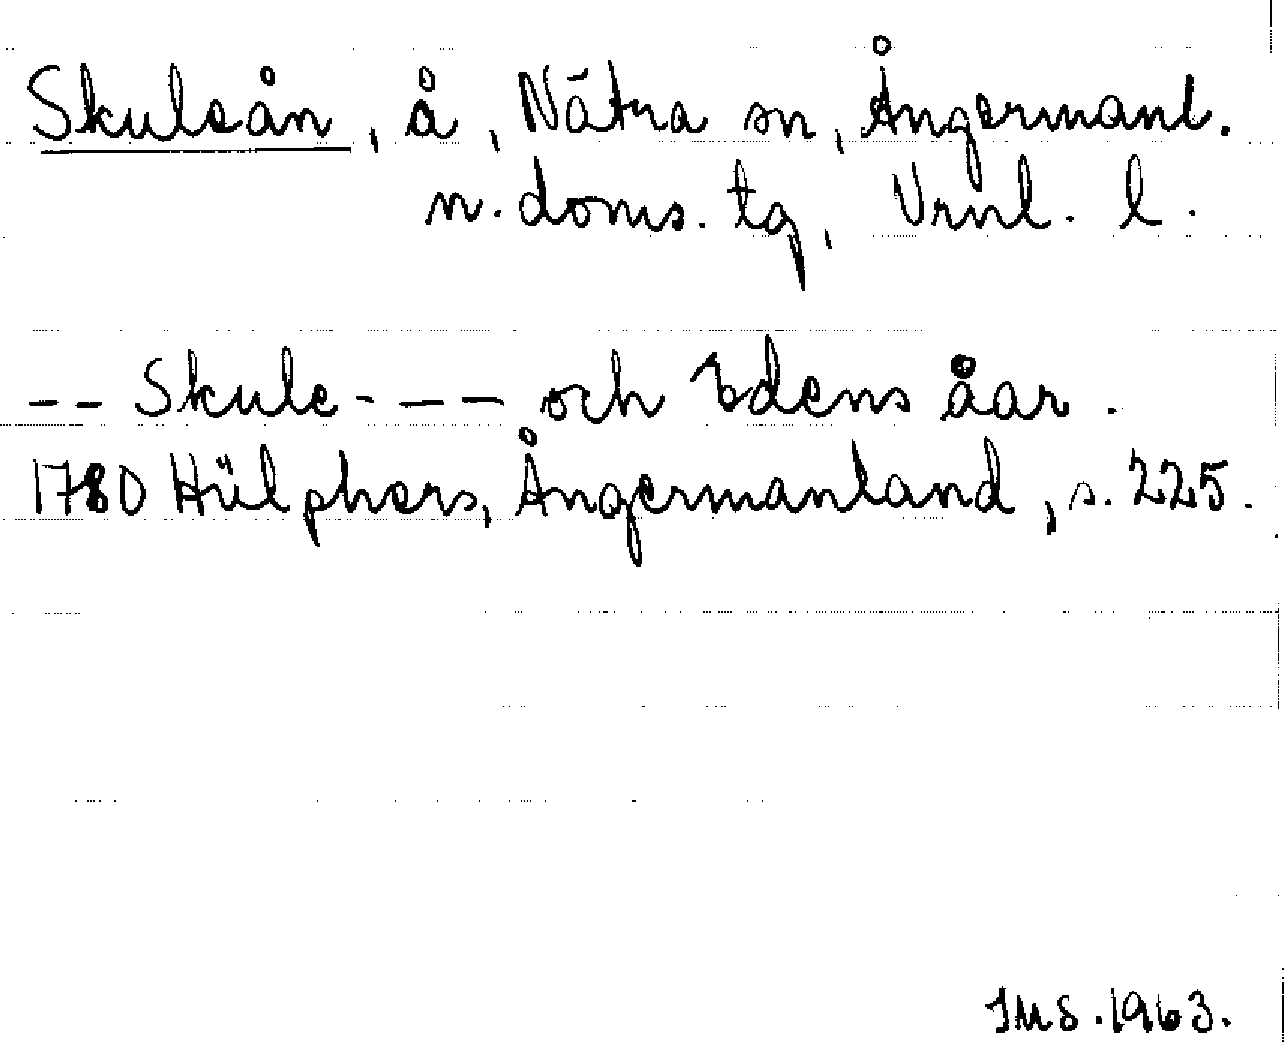 Skuleån, å, Nätra sn, Ångermanl.
n. doms. tg, Vrnl. l.
-- Skule - -- och Edens åar.
1780 Hülphers, Ångermanland, s. 225.
IMS. 1963.